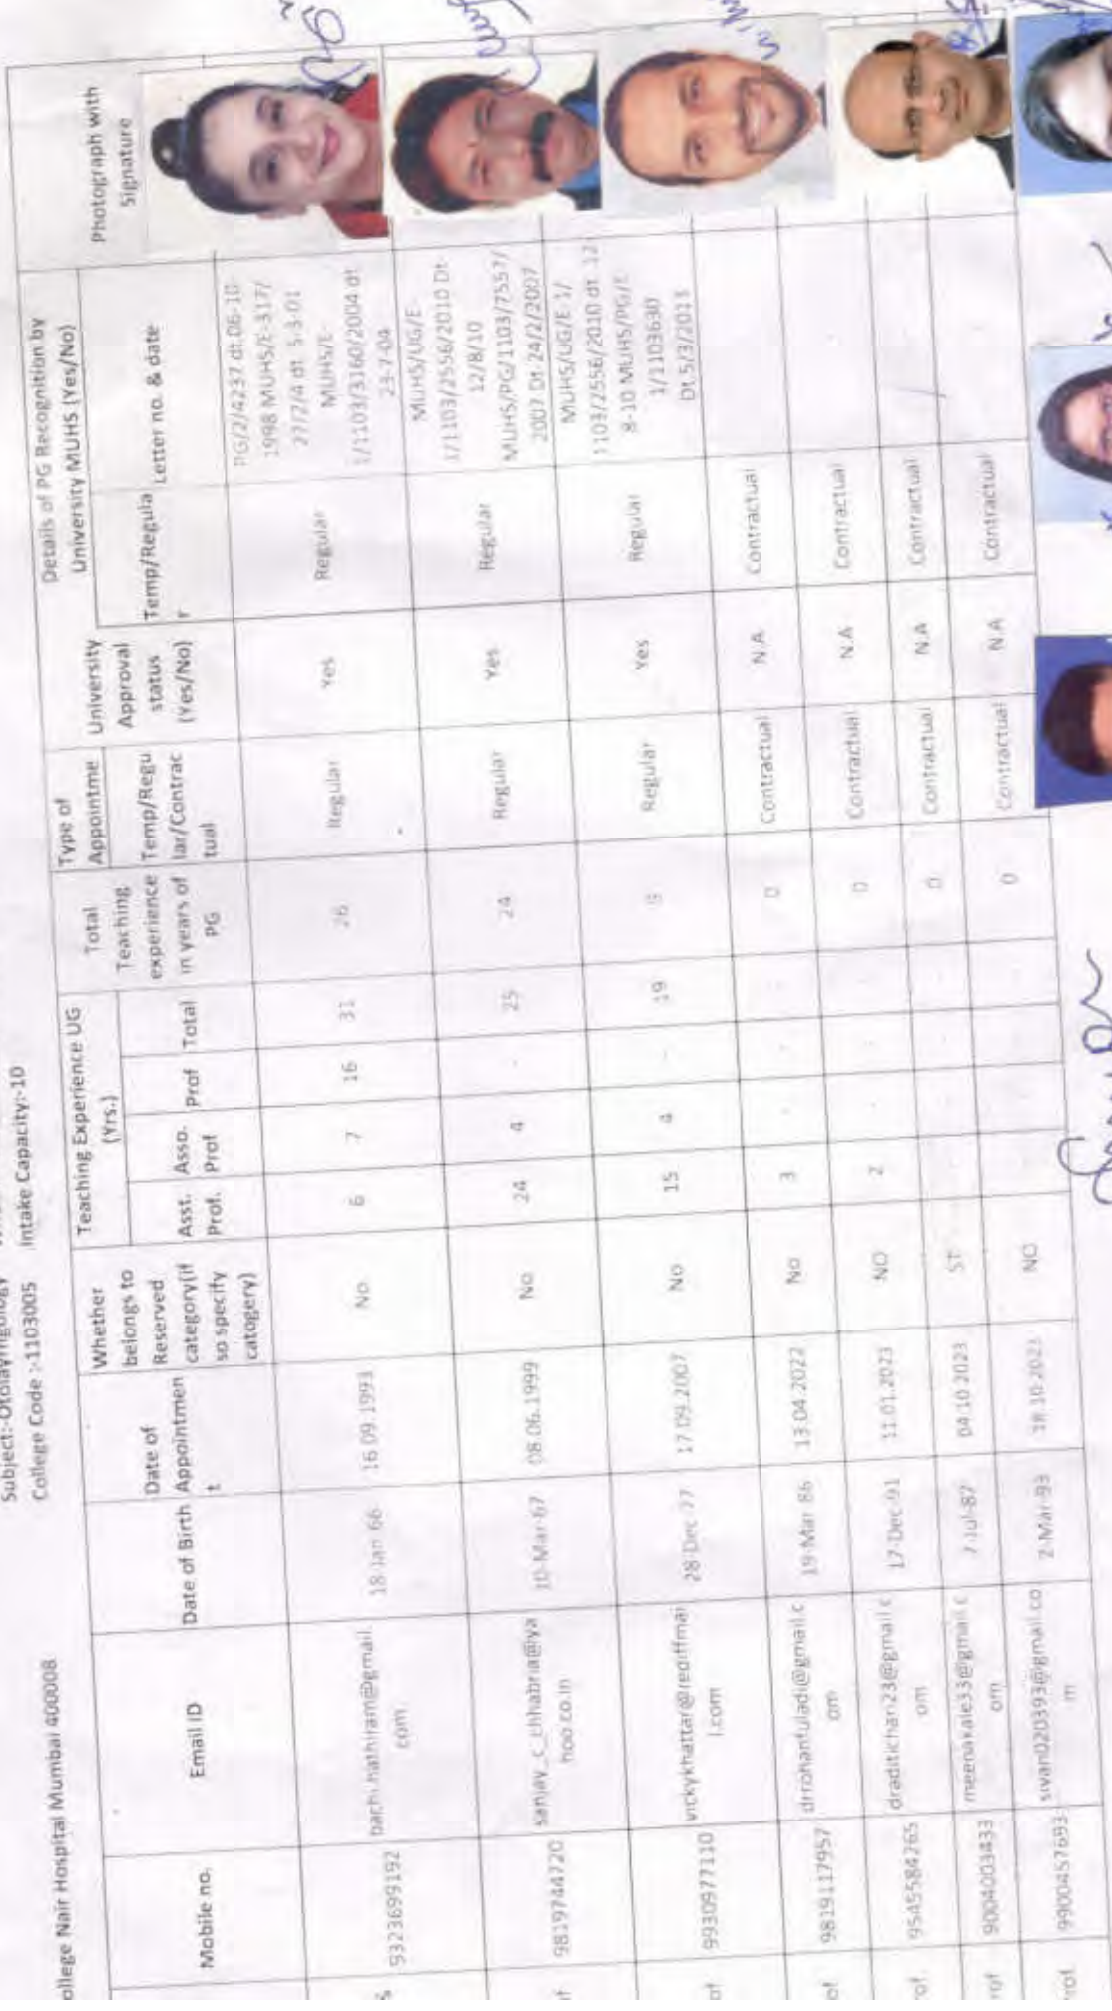 College Code :-1103005 Intake Capacity:-10
ollege Nair Hospital Mumbai 400008
Mobile no.
Email ID
Date of Birth
Date of
Appointmen
t
Whether
belongs to
Reserved
category(if
so specify
catogery)
Teaching Experience UG
(Yrs.)
Asst.
Prof.
Asso.
Prof
Prof
Total
Total
Teaching
experience
in years of
PG
Type of
Appointme
Temp/Regu
lar/Contrac
tual
University
Approval
status
(Yes/No)
Details of PG Recognition by
University MUHS (Yes/No)
Temp/Regula
r
Letter no. & date
Photograph with
Signature
9323699192
bachi.hathiram@gmail.
com
18-Jan-66
16.09.1993
No
6
7
16
31
26
Regular
Yes
Regular
PG/2/4237 dt.06-10-
1998 MUHS/E-317/
27/2/4 dt. 5-3-01
MUHS/E-
1/1103/3160/2004 dt
23-7-04
9819744720
sanjay_c_chhabria@ya
hoo.co.in
10-Mar-67
08.06.1999
No
24
4
-
25
24
Regular
Yes
Regular
MUHS/UG/E-
1/1103/2556/2010 Dt-
12/8/10
MUHS/PG/1103/7557/
2007 Dt-24/2/2007
9930977110
vickykhattar@rediffmai
l.com
28-Dec-77
17.09.2007
No
15
4
-
19
Regular
Yes
Regular
MUHS/UG/E-1/
1103/2556/2010 dt. 12
8-10 MUHS/PG/E-
1/1103630
Dt.5/3/2013
9819117957
drrohantuladi@gmail.c
om
19-Mar-86
13.04.2022
No
3
-
-
-
0
Contractual
N.A
Contractual
9545584765
draditichari23@gmail.c
om
17-Dec-91
11.01.2023
NO
2
-
-
-
0
Contractual
N.A
Contractual
9004003433
meenakale33@gmail.c
om
7-Jul-87
04.10.2023
ST
-
-
-
-
0
Contractual
N.A
Contractual
9900457693
sivan020393@gmail.co
m
2-Mar-93
18.10.2023
NO
-
-
-
-
0
Contractual
N.A
Contractual